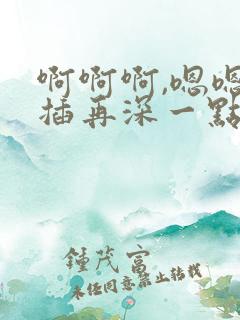 啊啊啊,嗯嗯
插再深一點
鍾茂富
未经同意禁止转载